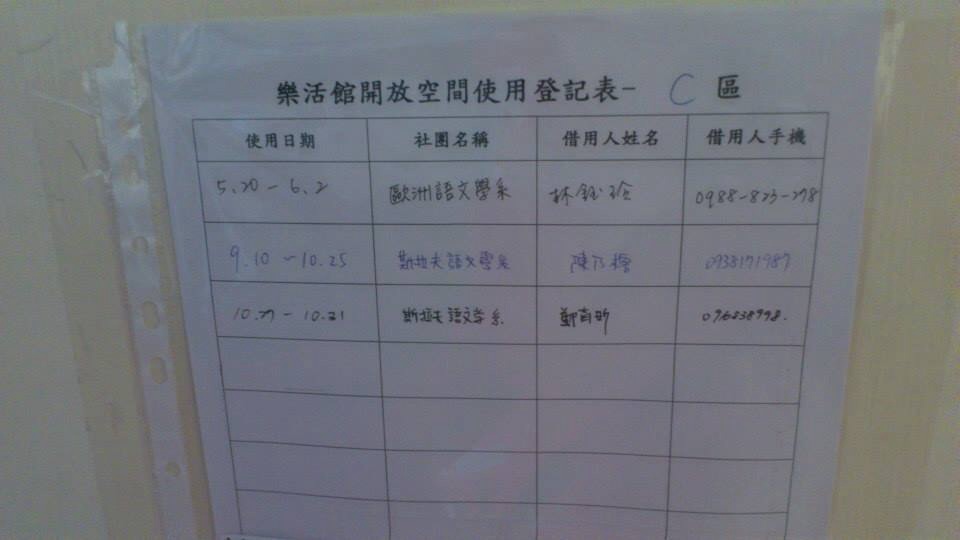 樂活館開放空間使用登記表- C 區
使用日期 社團名稱 借用人姓名 借用人手機
5.20-6.2 歐洲語文學系 林鈺玲 0988-823-278
9.10-10.25 斯拉夫語文學系 陳乃 0938171987
10.27-10.31 斯拉夫語文学系